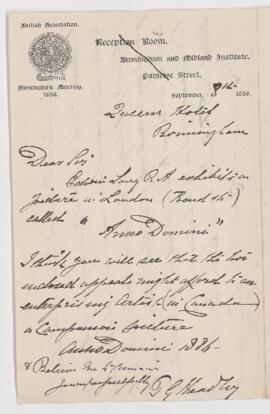 British Association.
Birmingham Meeting.
1886.
Reception Room.
Birmingham and Midland Institute,
Paradise Street,
September, 8th 1886.
Queens Hotel
Birmingham
Dear Sir
Edwin Long R.A. exhibits a
picture in London (Bond St)
called "Anno Domini"
I think you will see that the two
enclosed appeals might afford to an
enterprising Artist (in Canada)
a Companion picture
Anno Domini 1886
& Believe me to remain
yours faithfully